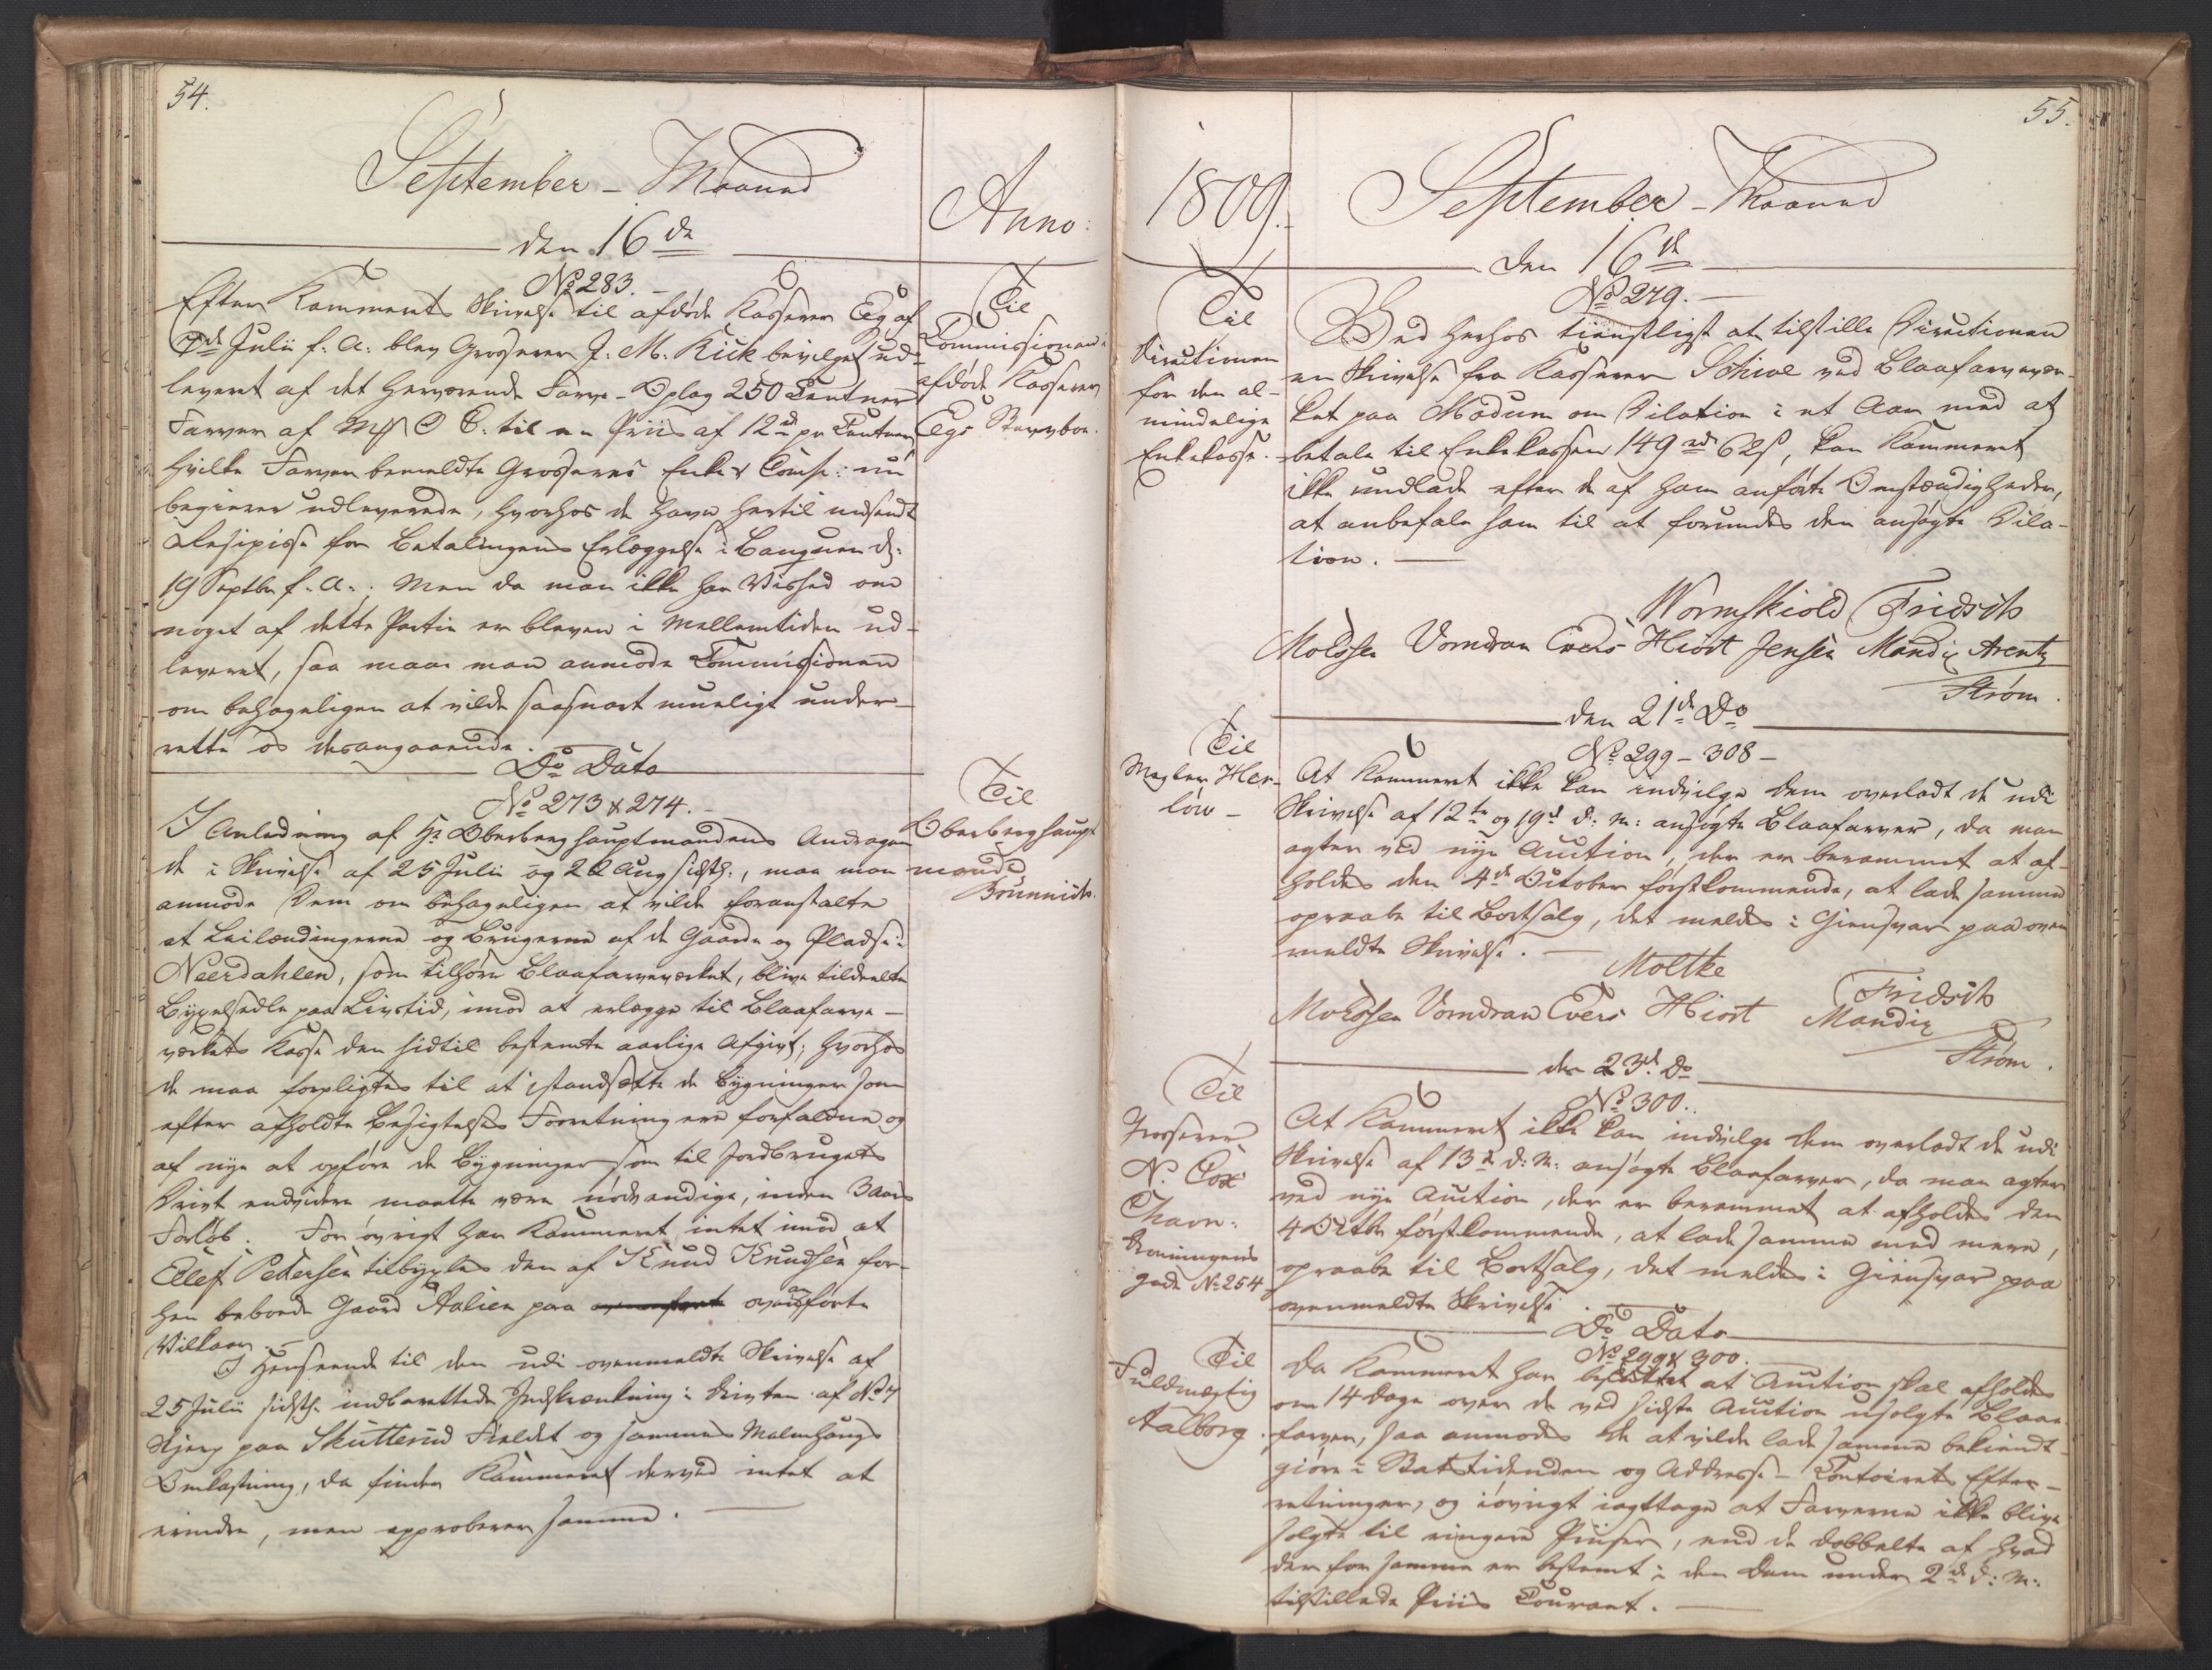 54.
September - Maaned
Anno:
den 16de
No 283.
Til
Commissionen i
afdøde Kasserer
Egs Sterrvboe.
Efter Kammerets Skrivelse til afdøde Kasserer Eeg af
Julii f: A: blev Grosserer J. M. Kick bevilget ud-
leveret af det herværende Farve-Oplag 250 Centner
Farver af O C. til en Priis af 12 rd pr Centner
hvilke Farver bemeldte Grosseres Enke & Comp: nu
begierer udleverede, hvorhos de have hertil indsendt
Resipisse for Betalingens Erlæggelse i Banquen d:
19 Septbr f. A.; Men da man ikke har Vished om
noget af dette Partie er bleven i Mellemtiden ud-
leveret, saa maae man anmode Commissionen
om behageligen at vilde saasnart mueligt under-
rette os desangaaende.
Do Dato
No 273 & 274.
Til
Oberberghaupt
mand
Brünnich.
I Anledning af Hr Oberberghauptmandens Andragen
de i Skrivelse af 25 Julii og 22 Aug sidstl., maa man
anmode Dem om behageligen at vilde foranstalte
at Leilændingerne og Brugerne af de Gaarde og Pladse i
Neerdahlen, som tilhøre Blaafarveverket, blive tildeelte
Bygselsedle paa Livstid, imod at erlægge til Blaafarve-
verkets Kasse den hidtil bestemte aarlige Afgivt; hvorhos
de maa forpligtes til at istandsætte de Bygninger som
efter afholdte Besigtelses Forretning ere forfaldne og
af nye at opføre de Bygninger som til Jordbrugets
Drivt endvidere maatte være nødvendige, inden 3 Aars
Forløb. For øvrigt har Kammeret intet imod at
Ellef Pedersen tilbygsles den af Knud Knudsen for-
hen beboede Gaard Aalien paa ovenanførte
Vilkaar.
I Henseende til den udi ovenmeldte Skrivelse af
25 Julii sidstl. indberettede Indskrænkning i Driften af No 7
Skjerp paa Skutterud Fieldet og sammes Malmhaugs
Omlastning, da finder Kammeret derved intet at
erindre, men approberer samme.
55.
1809.
September - Maaned
den 16de
No 279.
Til
Directionen
for den al-
mindelige
Enkekasse.
Ved herhos tienstligst at tilstille Directionen
en Skrivelse fra Kasserer Schive ved Blaafarvever-
ket paa Modum om Dilation i et Aar med at
betale til Enkekassen 149 rd 62 s, kan Kammeret
ikke undlade efter de af ham anførte Omstændigheder,
at anbefale ham til at forundes den ansøgte Dila-
tion.
Wormskiold Fridsch
Moldsen Vorndran Evers Hiort Jensen Mandix Arentz
Strøm.
den 21de Do
No 299 - 308 -
Til
Megler Her-
löw -
At Kammeret ikke kan indvilge Dem overladt de udi
Skrivelse af 12te og 19d d: M: ansøgte Blaafarver, da man
agter ved nye Auction, der er berammet at af-
holdes den 4de October førstkommende, at lade samme
opraabe til Bortsalg, det meldes i Giensvar paa oven
meldte Skrivelse.
Moltke
Fridsch
Moldsen Vorndran Evers Hiort Mandix
Strøm.
den 23d Do
No 300.
Til
Grosserer
N. Cox
Chavn:
Dronningens
gade No 254
At Kammeret ikke kan indvilge Dem overladt de udi
Skrivelse af 13de d: M: ansøgte Blaafarver, da man agter
ved nye Auction, der er berammet at afholdes den
4 Octbr førstkommende, at lade samme med mere,
opraabe til Bortsalg, det meldes i Giensvar paa
ovenmeldte Skrivelse.
Do Dato
No 299 & 300.
Til
Fuldmægtig
Aalborg.
Da Kammeret har besluttet at Auction skal afholdes
om 14 Dage over de ved sidste Auction usolgte Blaae
farver, saa anmodes De at vilde lade samme bekiendt-
giøre i Statstidenden og Addresse-Contoirets Efter-
retninger, og iøvrigt iagttage at Farverne ikke blive
solgte til ringere Priser, end de dobbelte af hvad
der for samme er bestemt i den Dem under 2d d: M:
tilstillede Priis Courant.